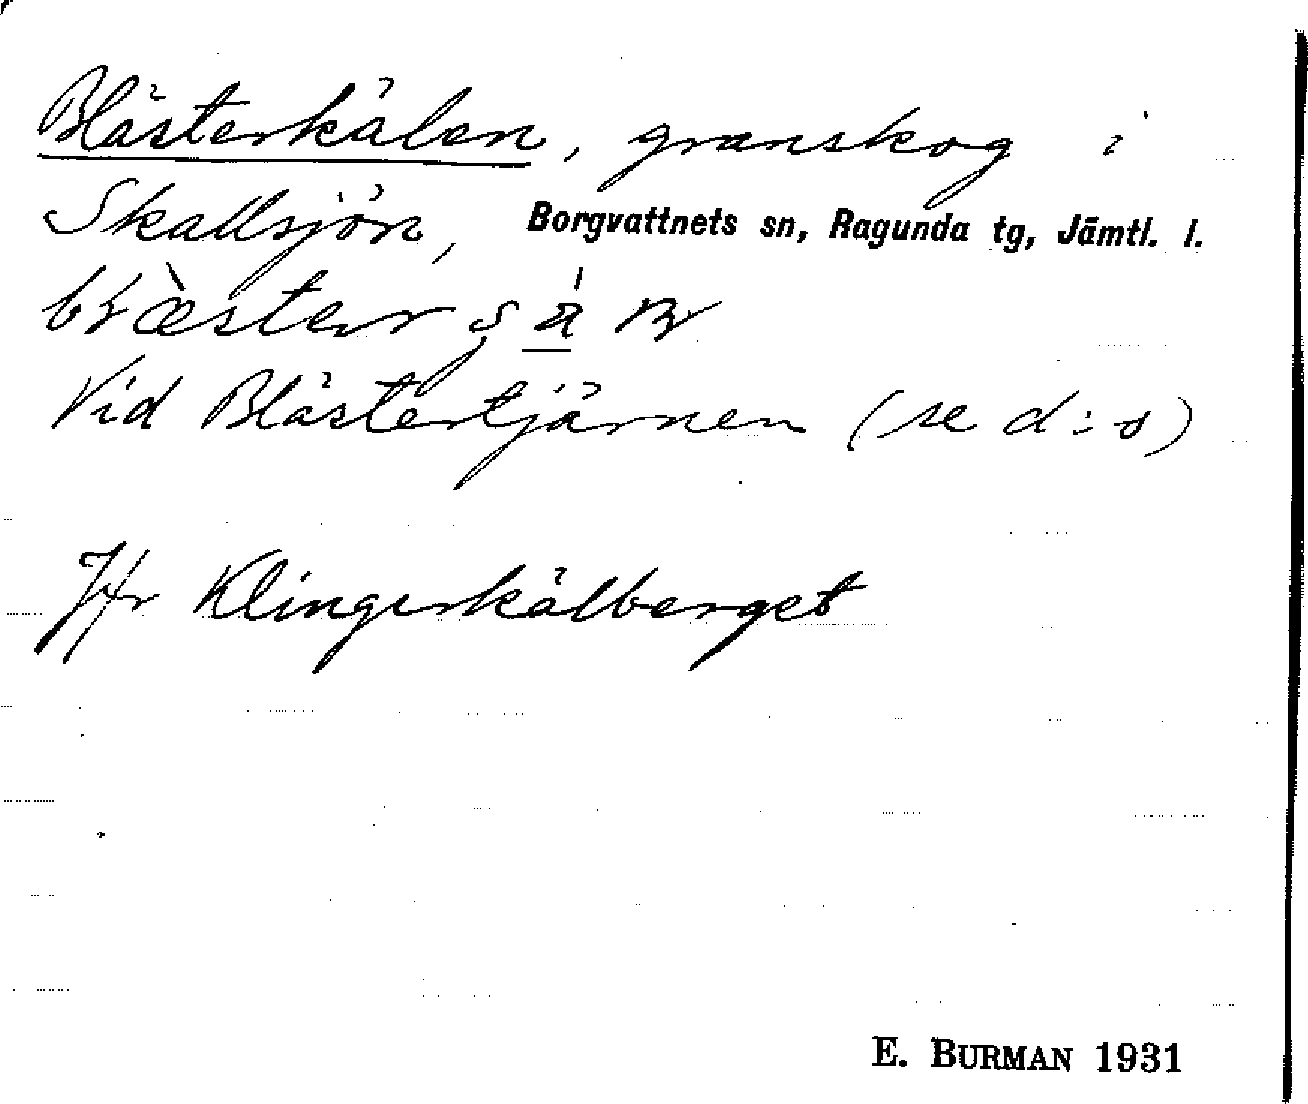 Blästerkälen, granskog i
Skallsjön, Borgvattnets sn, Ragunda tg, Jämtl. l.
Vid Blästertjärnen (se d:o)
Jfr Klingerkälberget
E. BURMAN 1931